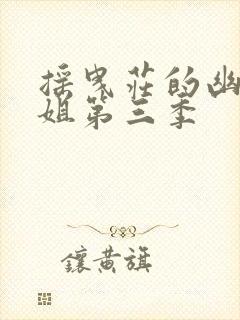 搖曳莊的幽
姐第三季
鑲黃旗